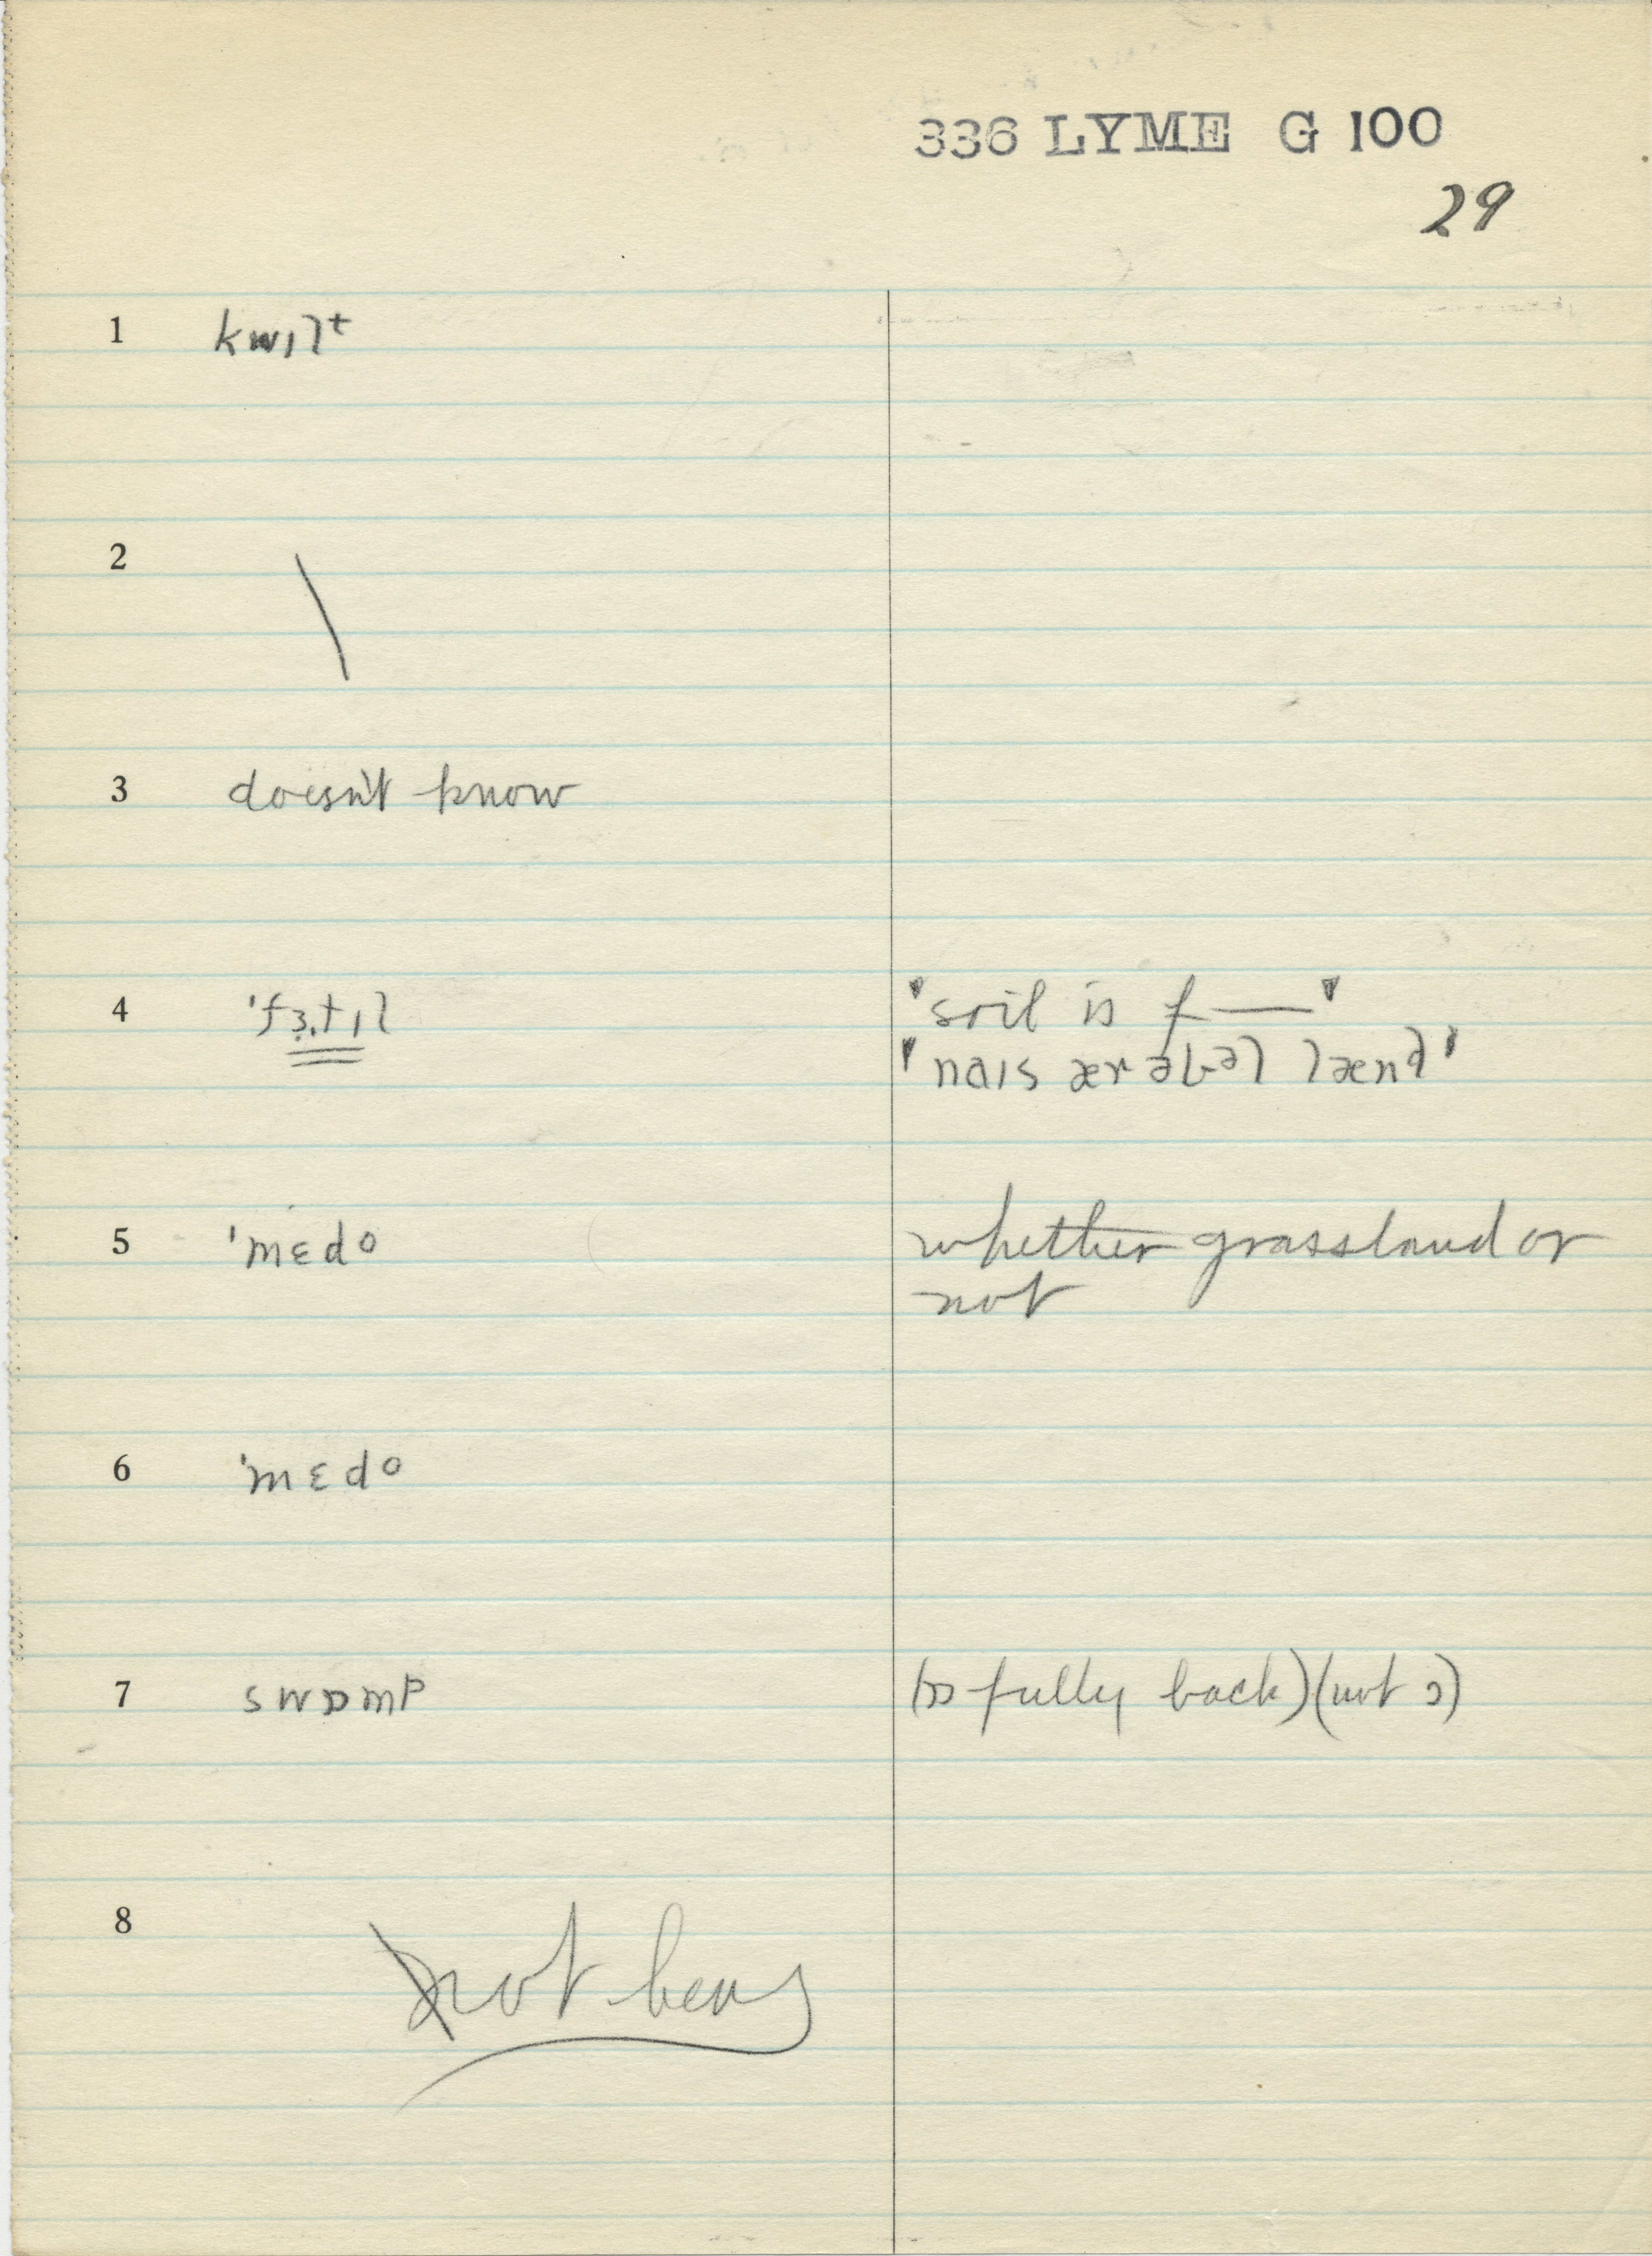 336 LYME G 100
29
1 kwɪlt
2 \
3 doesn't know
4 'fɜ.tɪl "soil is f——"
"naɪs ærəbəl lænd"
5 'mɛdo whether grassland or
not
6 'mɛdo
7 swɒmp (ɒ fully back)(not ɔ)
8 not